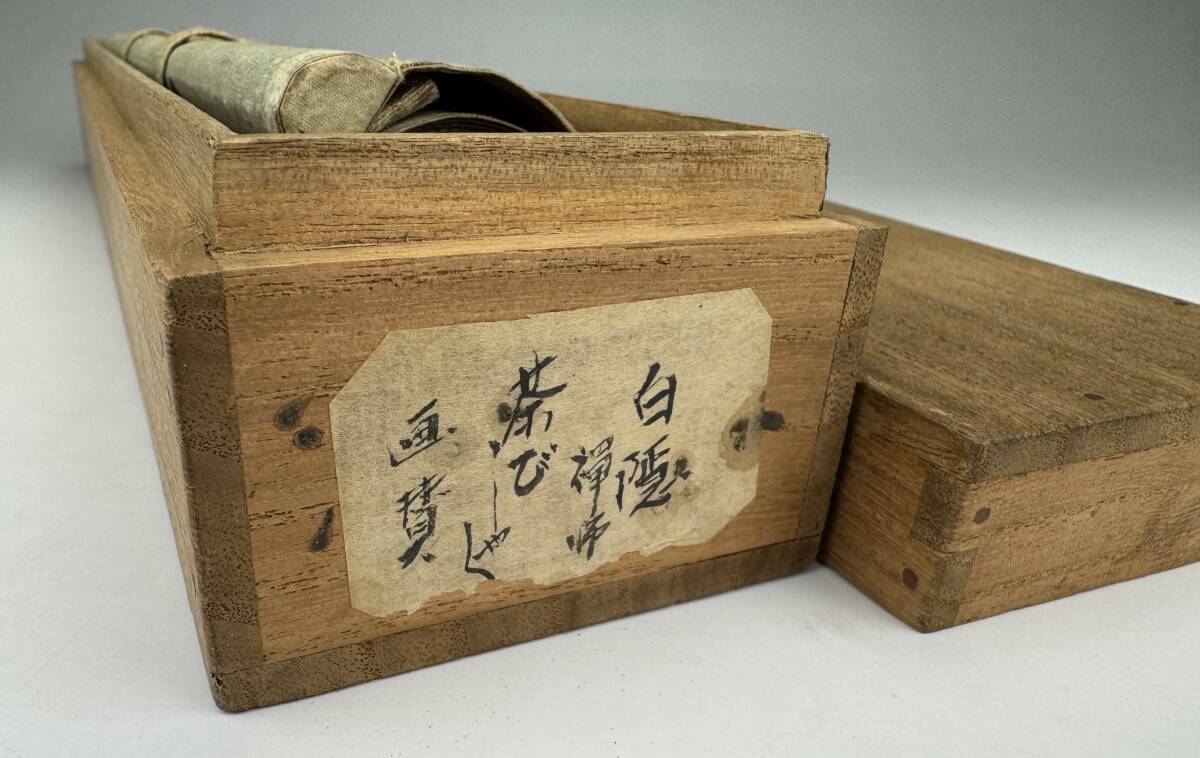 白隠禅師
茶びしゃく
画賛